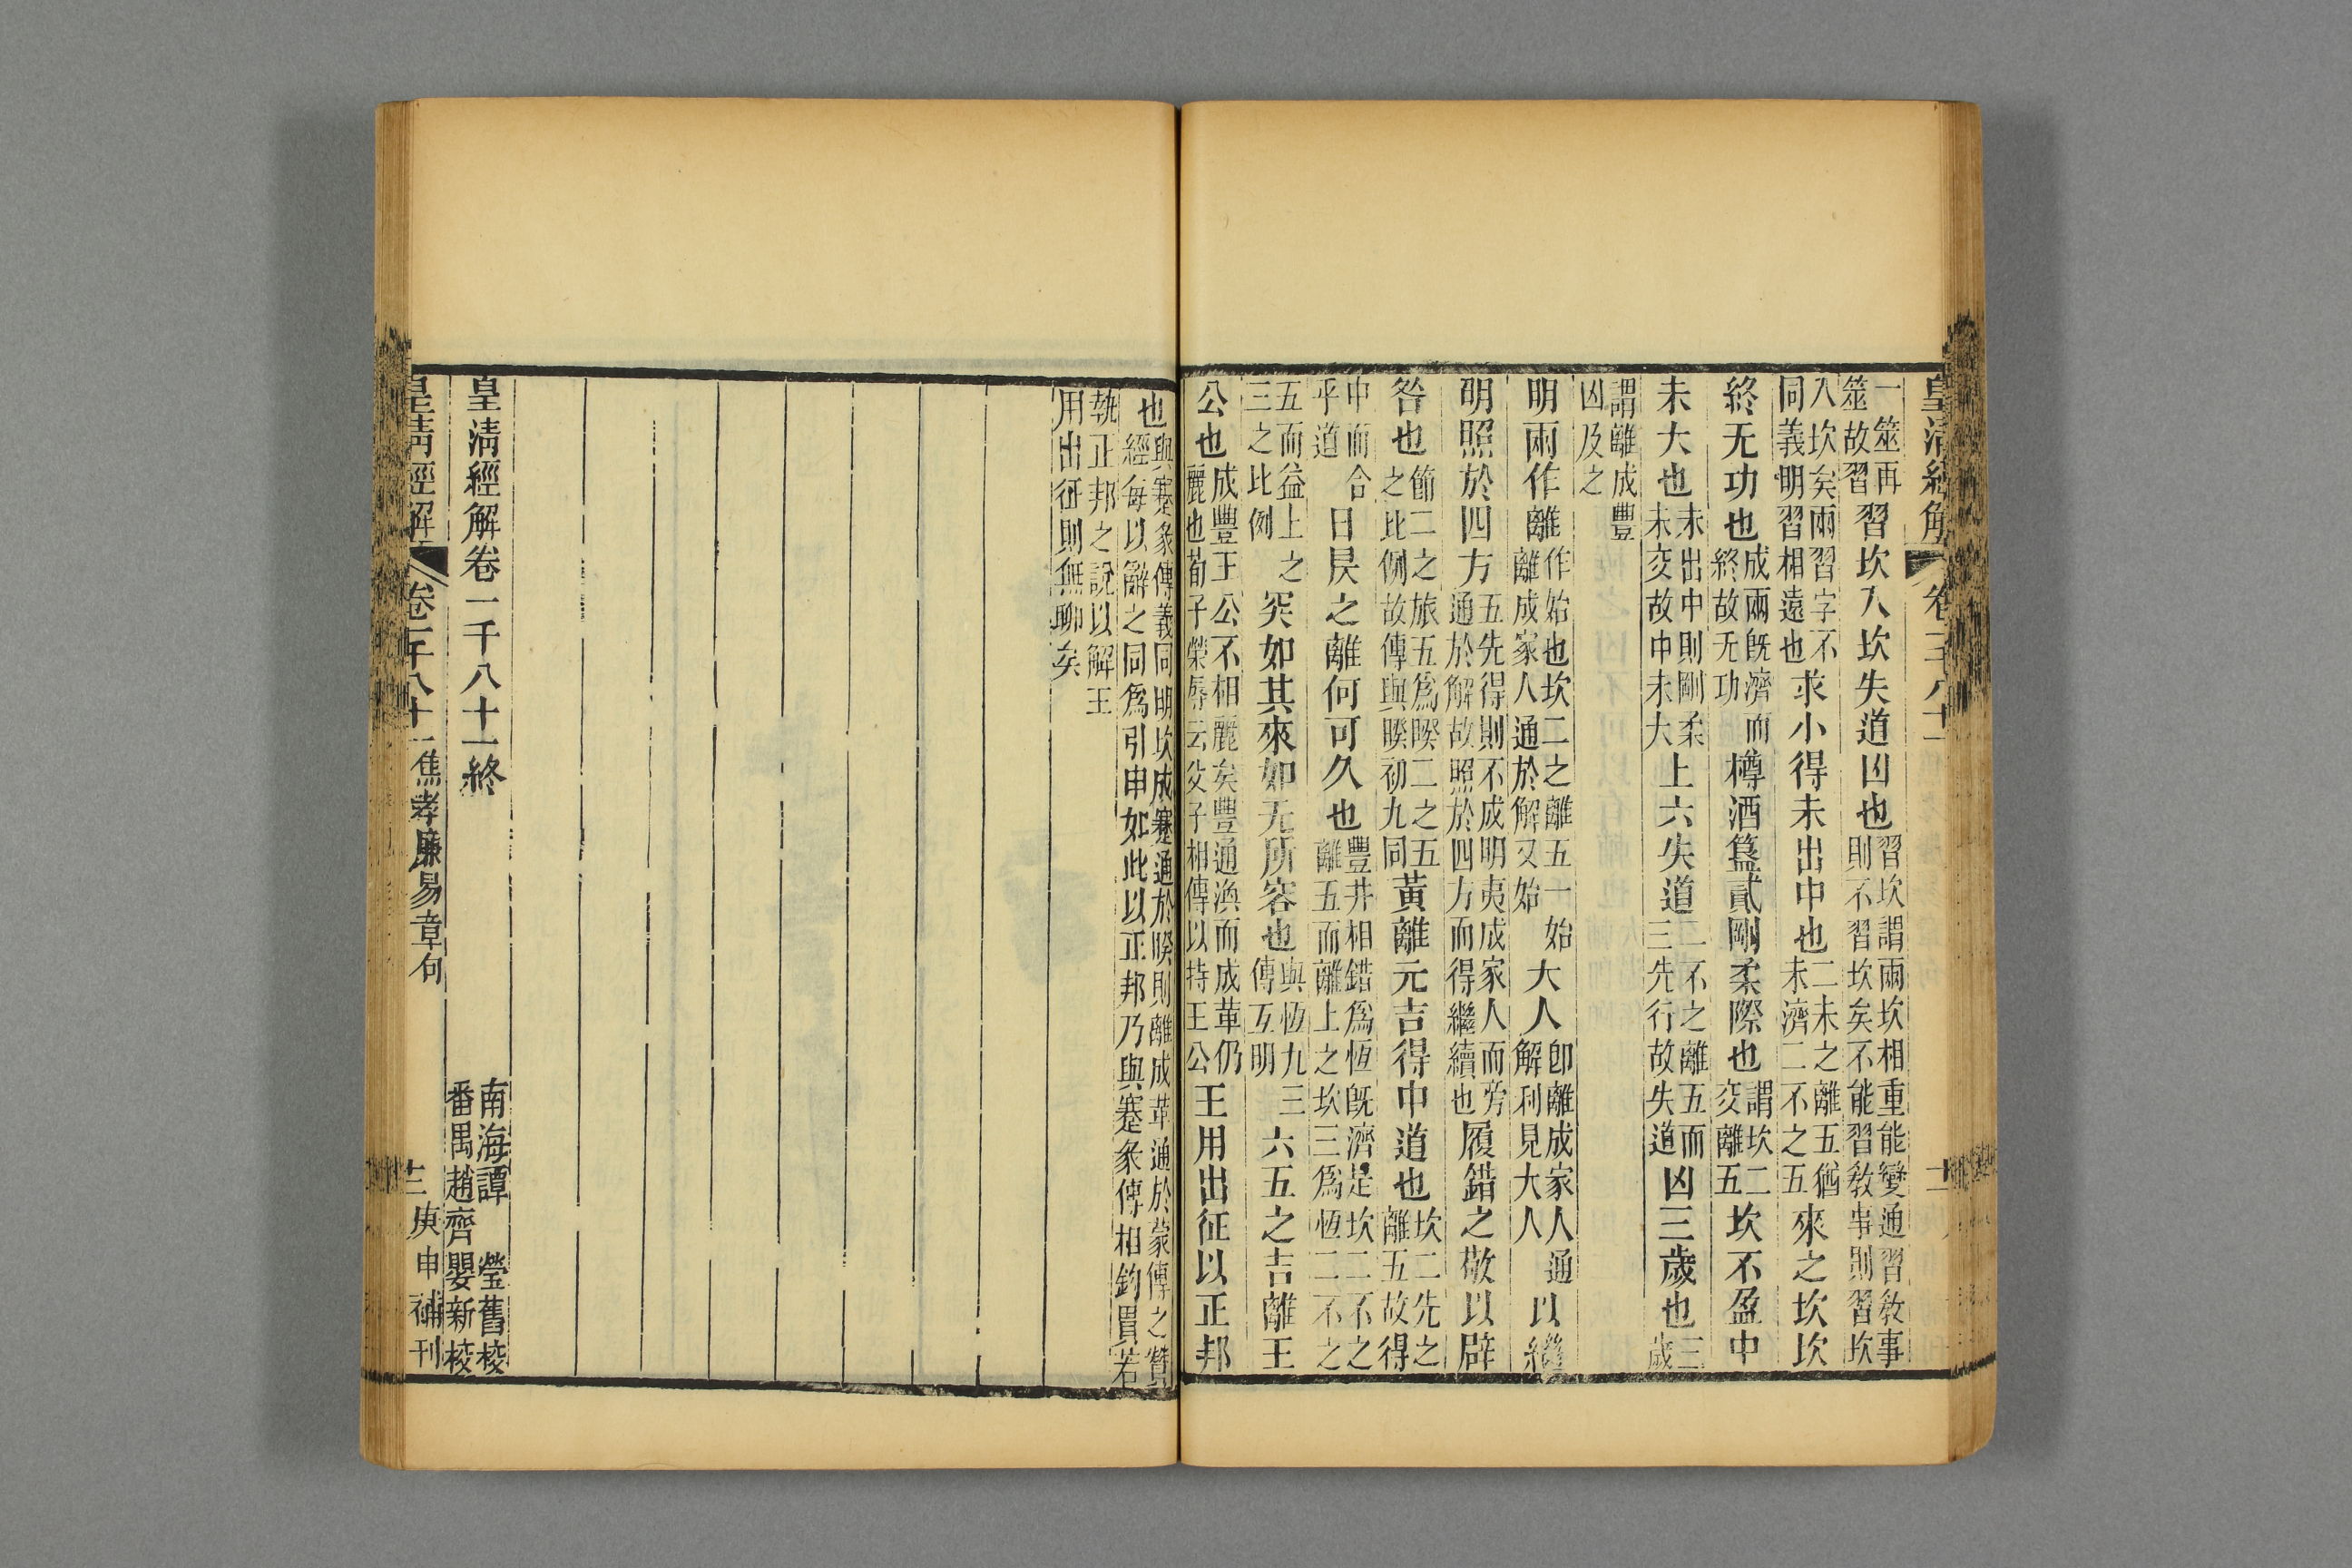 皇清經解 卷一千八十一
一筮再筮故習習坎入坎失道凶也習坎謂兩坎相重能變通習敎事則不習坎矣不能習敎事則習坎
入坎矣兩習字不同義明習相遠也求小得未出中也二未之離五猶未濟二不之五來之坎坎
終无功也成兩旣濟而終故无功樽酒簋貳剛柔際也謂坎二交離五坎不盈中
未大也未出中則剛柔未交故中未大上六失道二不之離五而三先行故失道凶三歲也三歲
謂離成豐凶及之
明兩作離作始也坎二之離五一始離成家人通於解又始大人卽離成家人通解利見大人以繼
明照於四方五先得則不成明夷成家人而旁通於解故照於四方而得繼續也履錯之敬以辟
咎也節二之旅五爲睽二之五之比例故傳與睽初九同黃離元吉得中道也坎二先之離五故得
中而合乎道日昃之離何可久也豐井相錯爲恆旣濟是坎二不之離五而離上之坎三爲恆二不之
五而益上之三之比例突如其來如无所容也與恆九三傳互明六五之吉離王
公也成豐王公不相麗矣豐通渙而成革仍麗也荀子榮辱云父子相傳以持王公王用出征以正邦
也與蹇彖傳義同明坎成蹇通於睽則離成革通於蒙傳之贊經每以辭之同爲引申如此以正邦乃與蹇彖傳相鈎貫若
執正邦之說以解王用出征則無聊矣
皇清經解卷一千八十一終
南海譚 瑩舊校
番禺趙齊嬰新校
皇清經解 卷一千八十一 焦孝廉易章句 庚申補刊